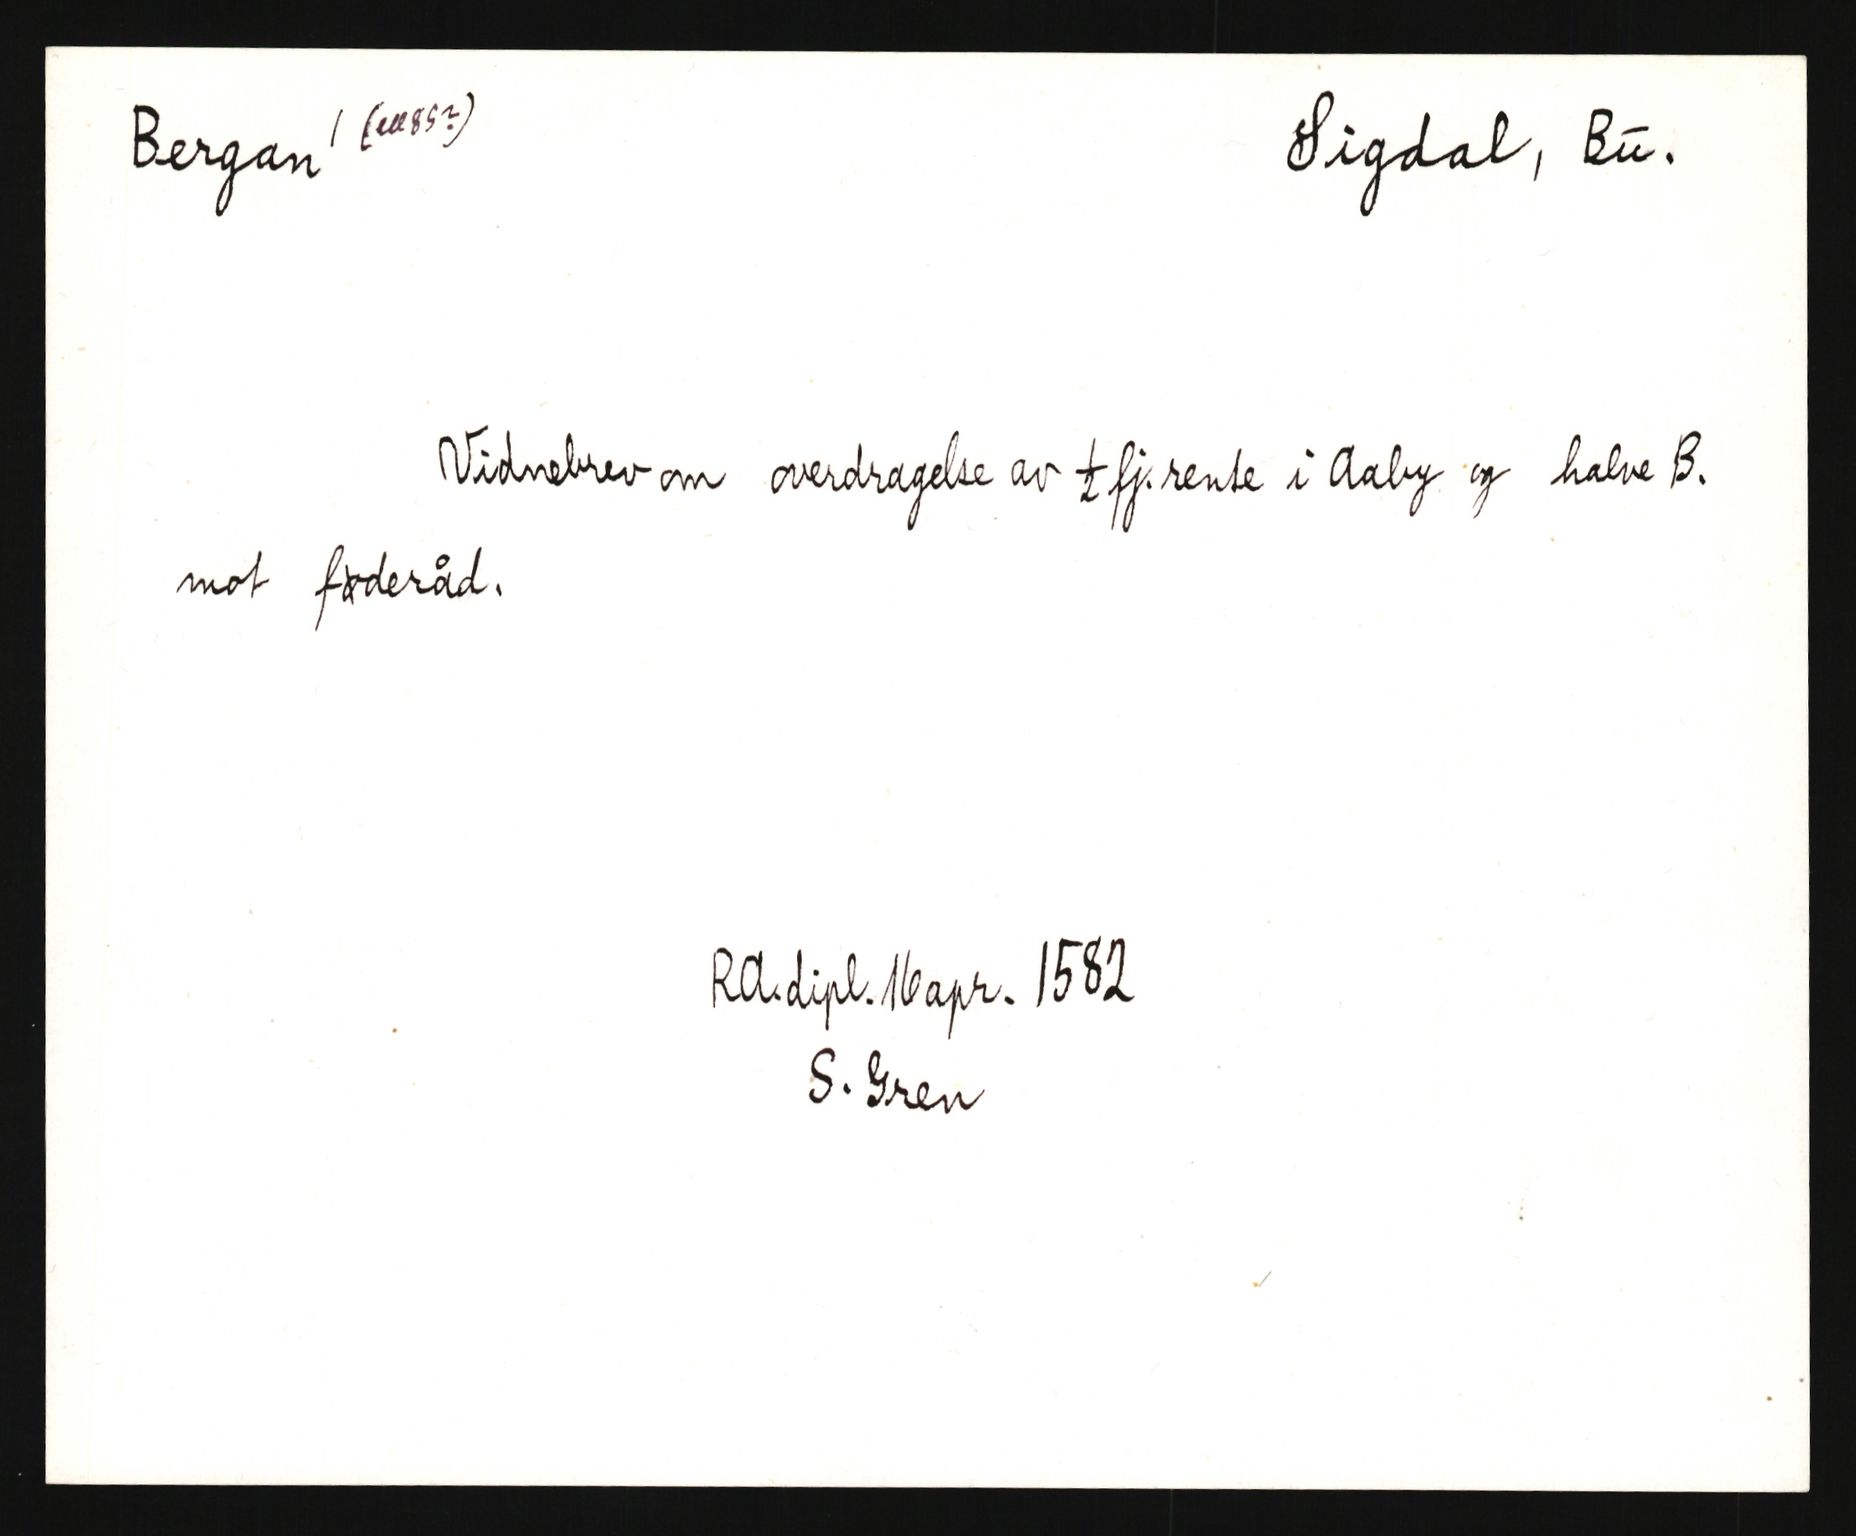 Bergan
Sigdal, Bu.
Vidnebrev om overdragelse av ½ fj. rente i Aaby og halve B.
mot føderåd.
RA. dipl. 16 apr. 1582
S. Gren